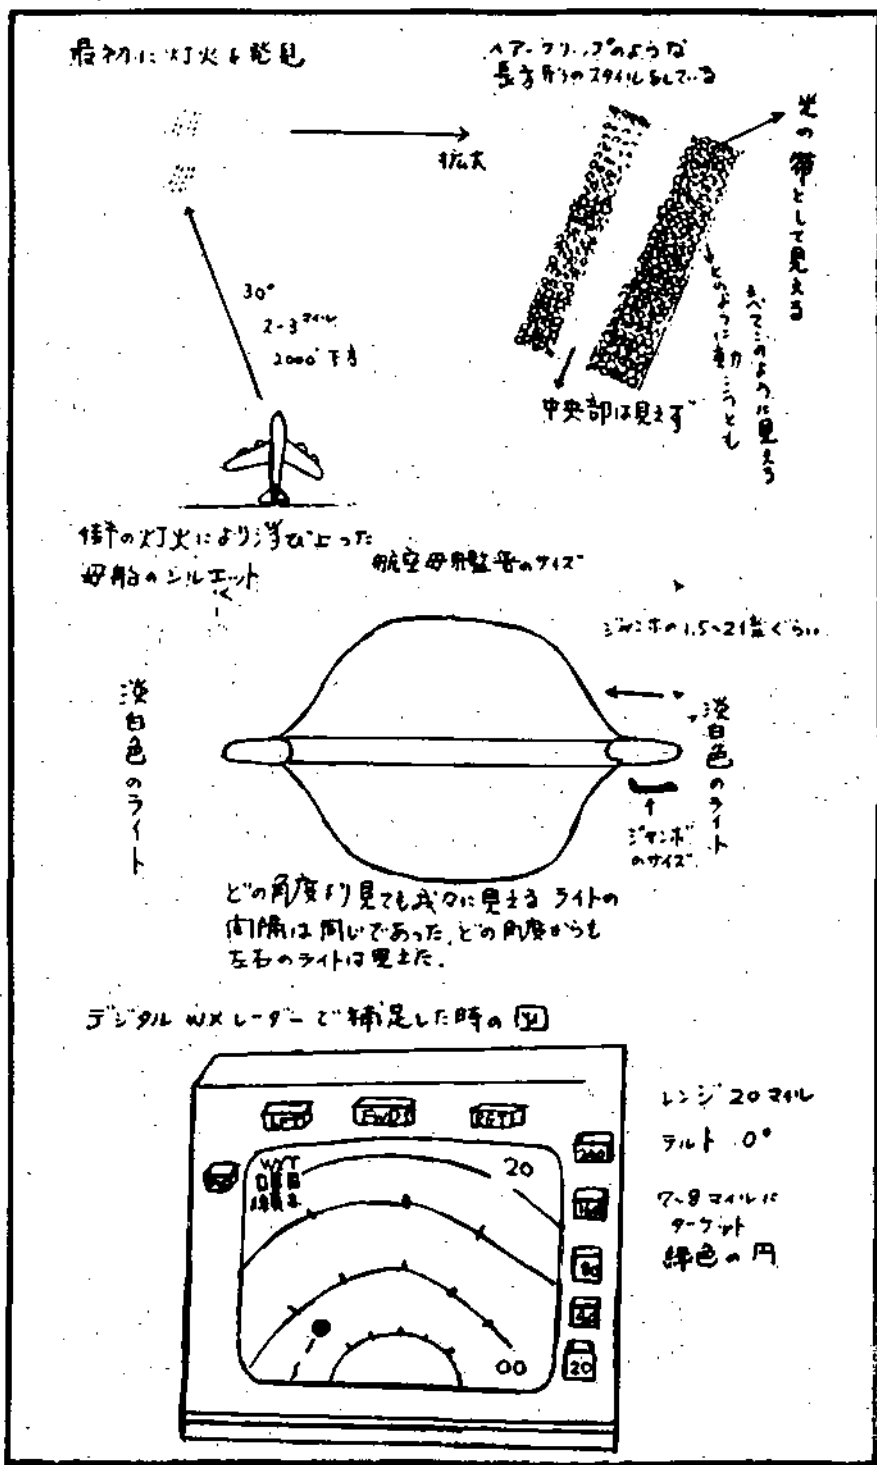 最初に灯火を発見
ヘアークリップのような
長方形のスタイルをしている
拡大
光の帯として見える
30°
2-3マイル
2000'下方
どのように動こうとも
すべてこのように見える
中央部は見えず
街の灯火により浮び上った
母船のシルエット
航空母艦
のサイズ
ジャンボの1.5~2倍ぐらい
淡白色のライト
淡白色のライト
ジャンボ
のサイズ
どの角度より見ても我々に見える ライトの
間隔は同じであった、どの角度からも
左右のライトは見えた.
デジタル WX レーダーで補足した時の図
LFT
FWD
RGT
WXT
20
00
20
レンジ 20マイル
テルト 0°
7~8マイルに
ターゲット
緑色の円